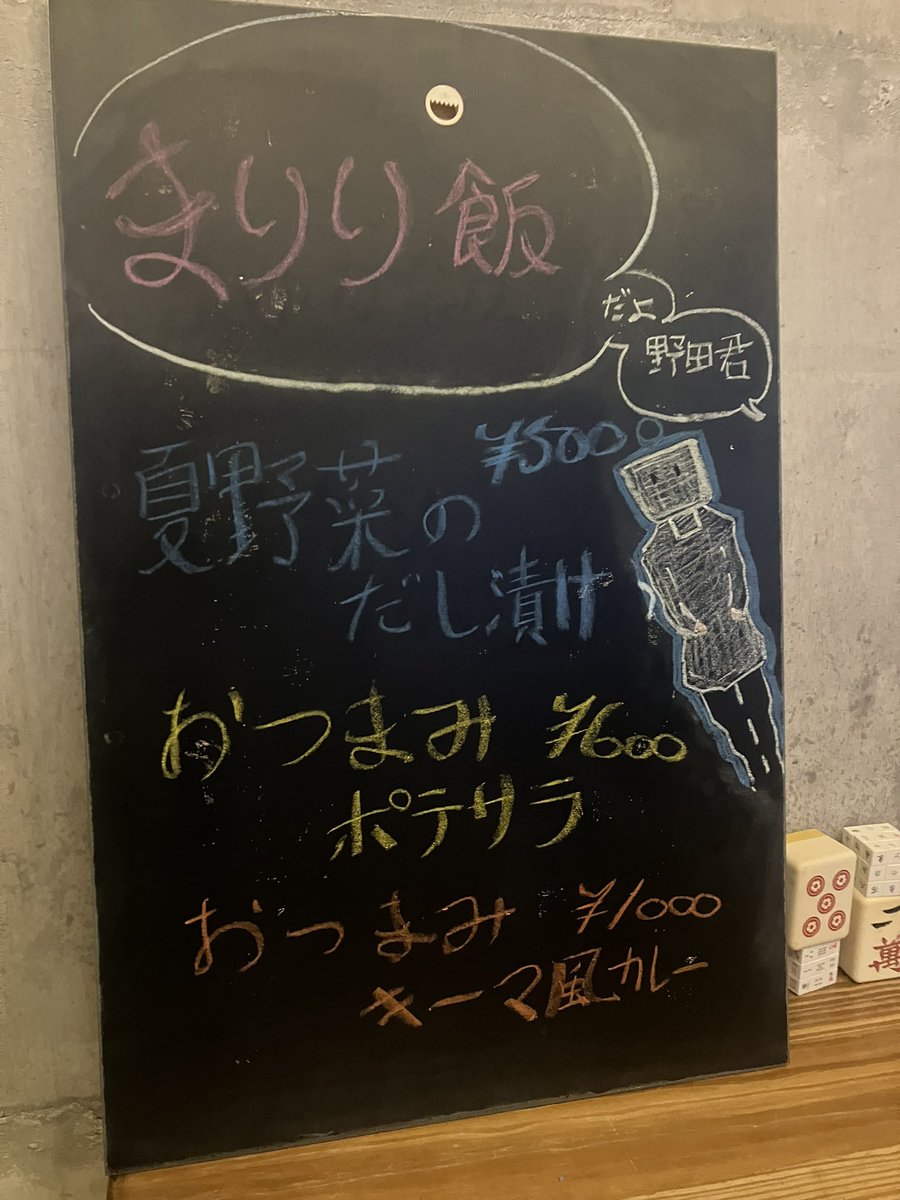 まりり飯
だよ
野田君
夏野菜の ¥500
だし漬け
おつまみ ¥600
ポテサラ
おつまみ ¥1000
キーマ風カレー
一
萬